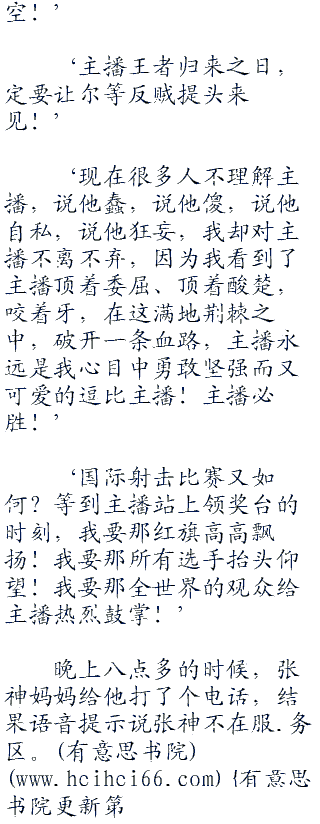 空！’
‘主播王者归来之日，
定要让尔等反贼提头来
见！’
‘现在很多人不理解主
播，说他蠢，说他傻，说他
自私，说他狂妄，我却对主
播不离不弃，因为我看到了
主播顶着委屈、顶着酸楚，
咬着牙，在这满地荆棘之
中，破开一条血路，主播永
远是我心目中勇敢坚强而又
可爱的逗比主播！主播必
胜！’
‘国际射击比赛又如
何？等到主播站上领奖台的
时刻，我要那红旗高高飘
扬！我要那所有选手抬头仰
望！我要那全世界的观众给
主播热烈鼓掌！’
晚上八点多的时候，张
神妈妈给他打了个电话，结
果语音提示说张神不在服.务
区。(有意思书院)
(www.hcihci66.com){有意思
书院更新第